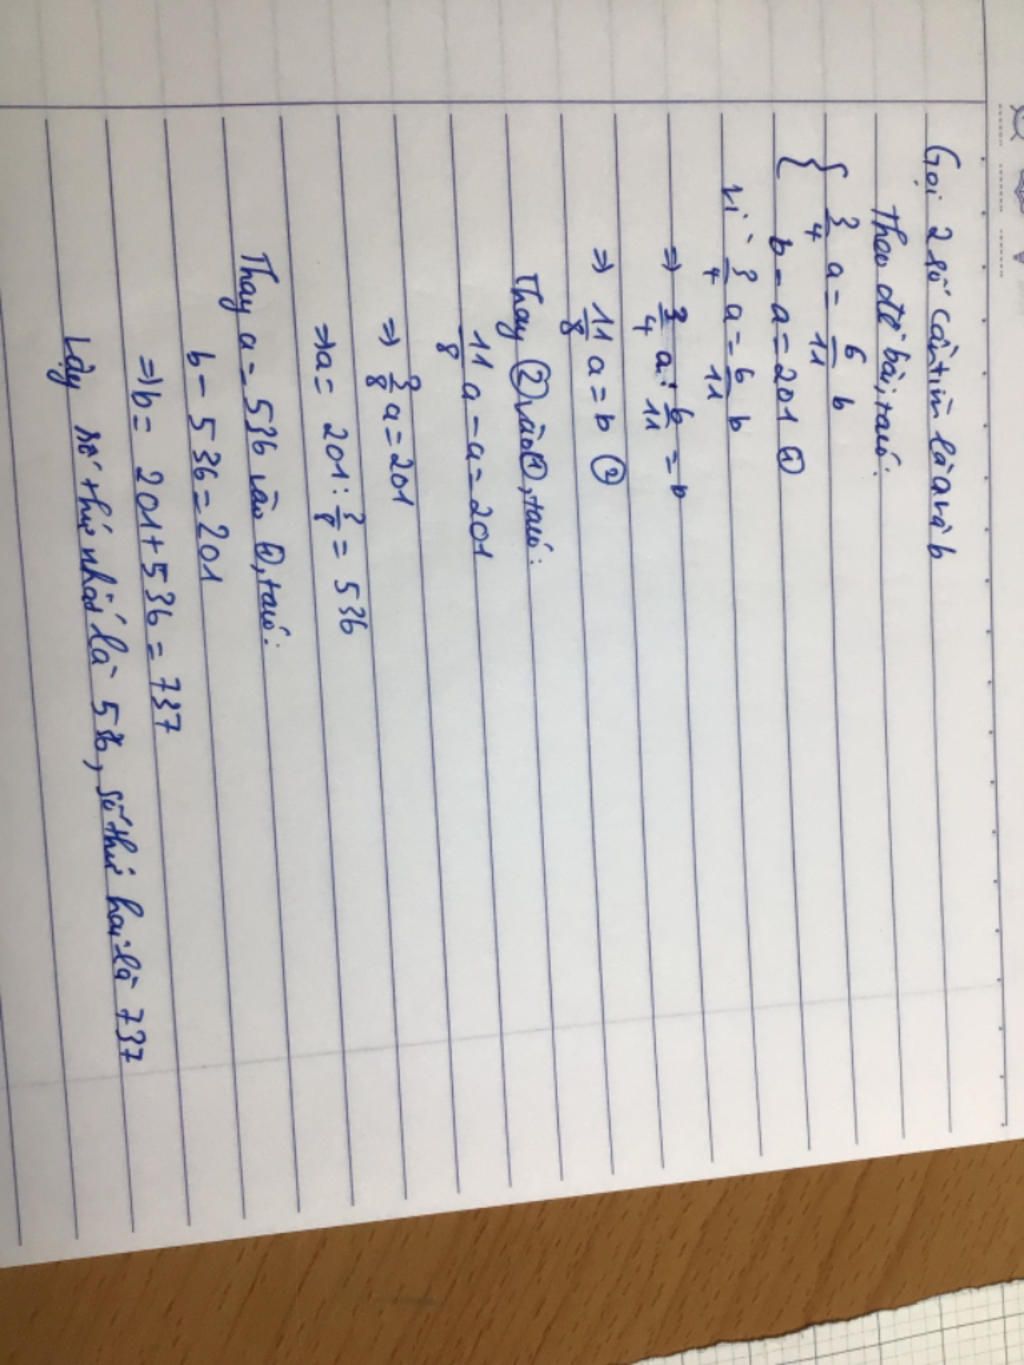 Gọi 2 số cần tìm là a và b
Theo đề bài, ta có:
{ 3/4 a = 6/11 b
b - a = 201 ①
Vì 3/4 a = 6/11 b
=> 3/4 a : 6/11 = b
=> 11/8 a = b ②
Thay ② vào ①, ta có:
11/8 a - a = 201
=> 3/8 a = 201
=> a = 201 : 3/8 = 536
Thay a = 536 vào ①, ta có:
b - 536 = 201
=> b = 201 + 536 = 737
Vậy số thứ nhất là 536, số thứ hai là 737